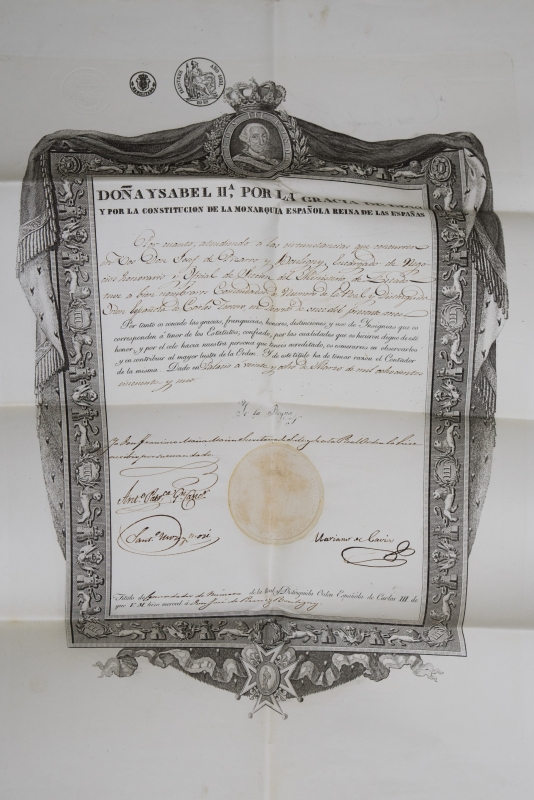 DOÑA YSABEL II.ª POR LA GRACIA DE DIOS
Y POR LA CONSTITUCION DE LA MONARQUIA ESPAÑOLA REINA DE LAS ESPAÑAS
Por cuanto, atendiendo a las circunstancias que concurren
en Vos Don José de Pizarro y Bouligny, Encargado de Nego
cios honorario y Oficial de la del Ministerio de Estado
tuve a bien nombraros Comendador de Numero de la Real y Distinguida
Orden Española de Carlos Tercero, en Decreto de once del presente mes
Por tanto os concedo las gracias, franquicias, honores, distinciones y uso de Insignias que os
corresponden á tenor de los Estatutos; confiado, por las cualidades que os hacen digno de este
honor, y por el celo hacia nuestra persona que teneis acreditado, os esmerareis en observarlos
y en contribuir al mayor lustre de la Orden. Y de este titulo ha de tomar razon el Contador
de la misma. Dado en Palacio a veinte y ocho de Marzo de mil ochocientos
cincuenta y uno
Yo la Reyna
Yo Don Francisco
por su mandado
Mariano de
Titulo de Comendador de Numero de la Real y Distinguida Orden Española de Carlos III de
que V. M. hizo merced á Don José de Pizarro y Bouligny